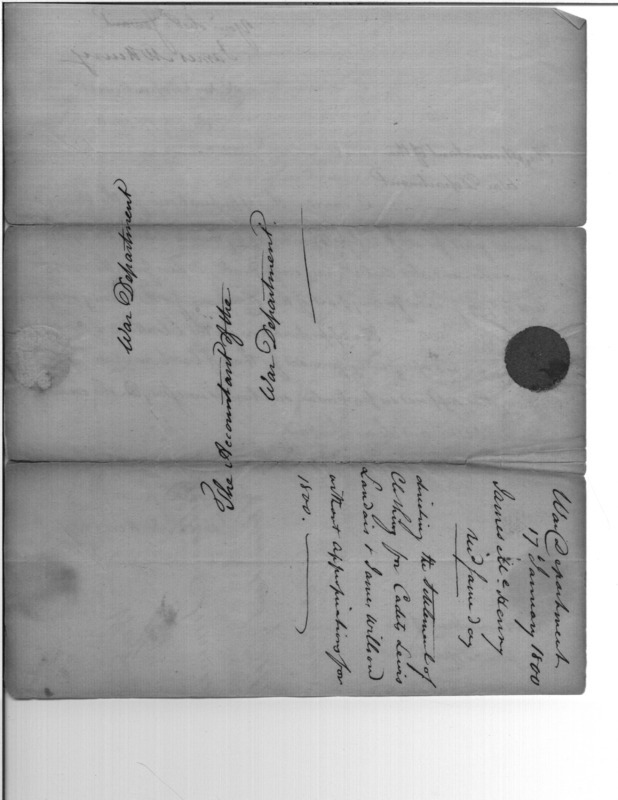 War Department
The Accountant of the
War Department.
War Department
17 January 1800
James McHenry
rec'd same day
directing the settlement of
Clothing for Cadets Lewis
Landais & James Willson
without appropriations for
1800.